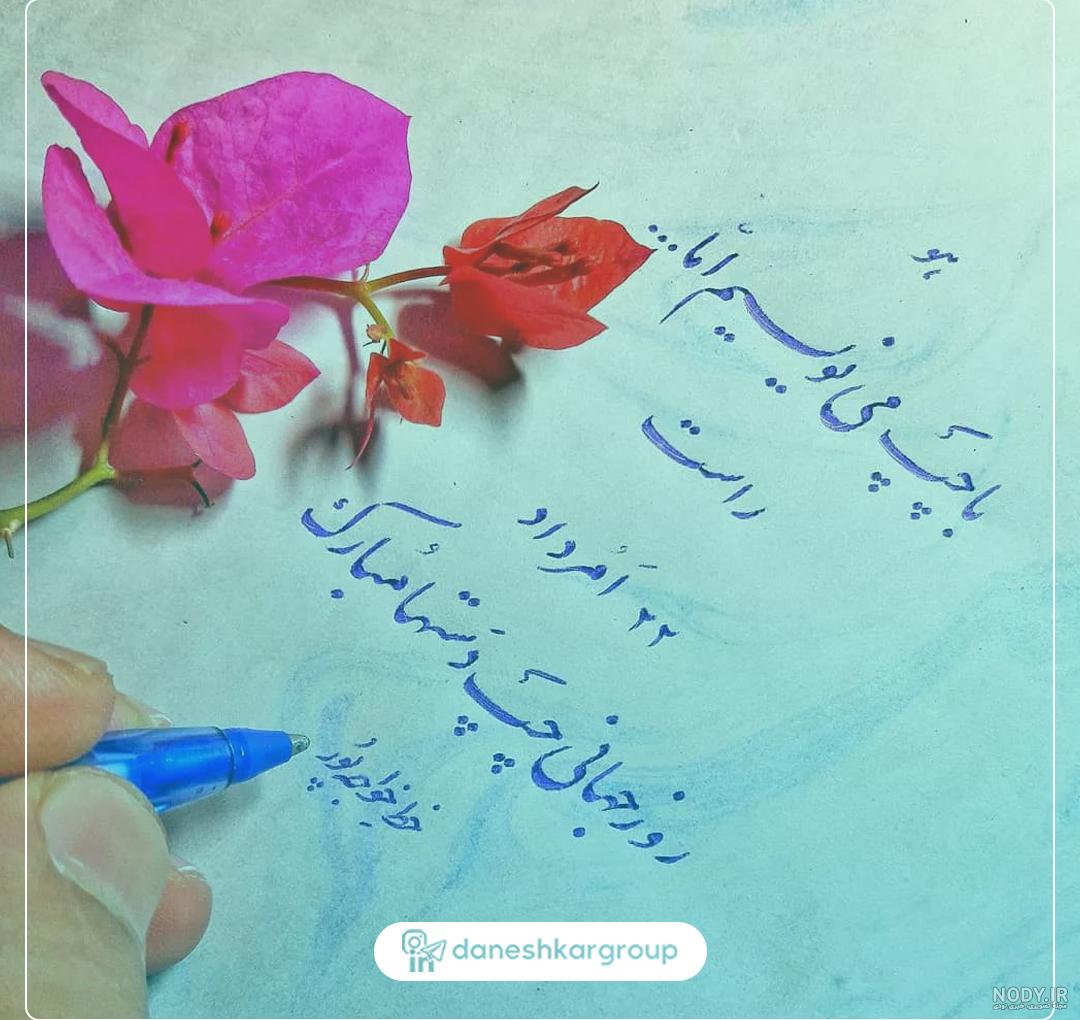 هو
با چپ می نویسیم اما...
راست
۲۲ اَمُرداد
روز جهانی چپ دَستها مُبارک
خط خواجه پور
daneshkargroup
NODY.IR